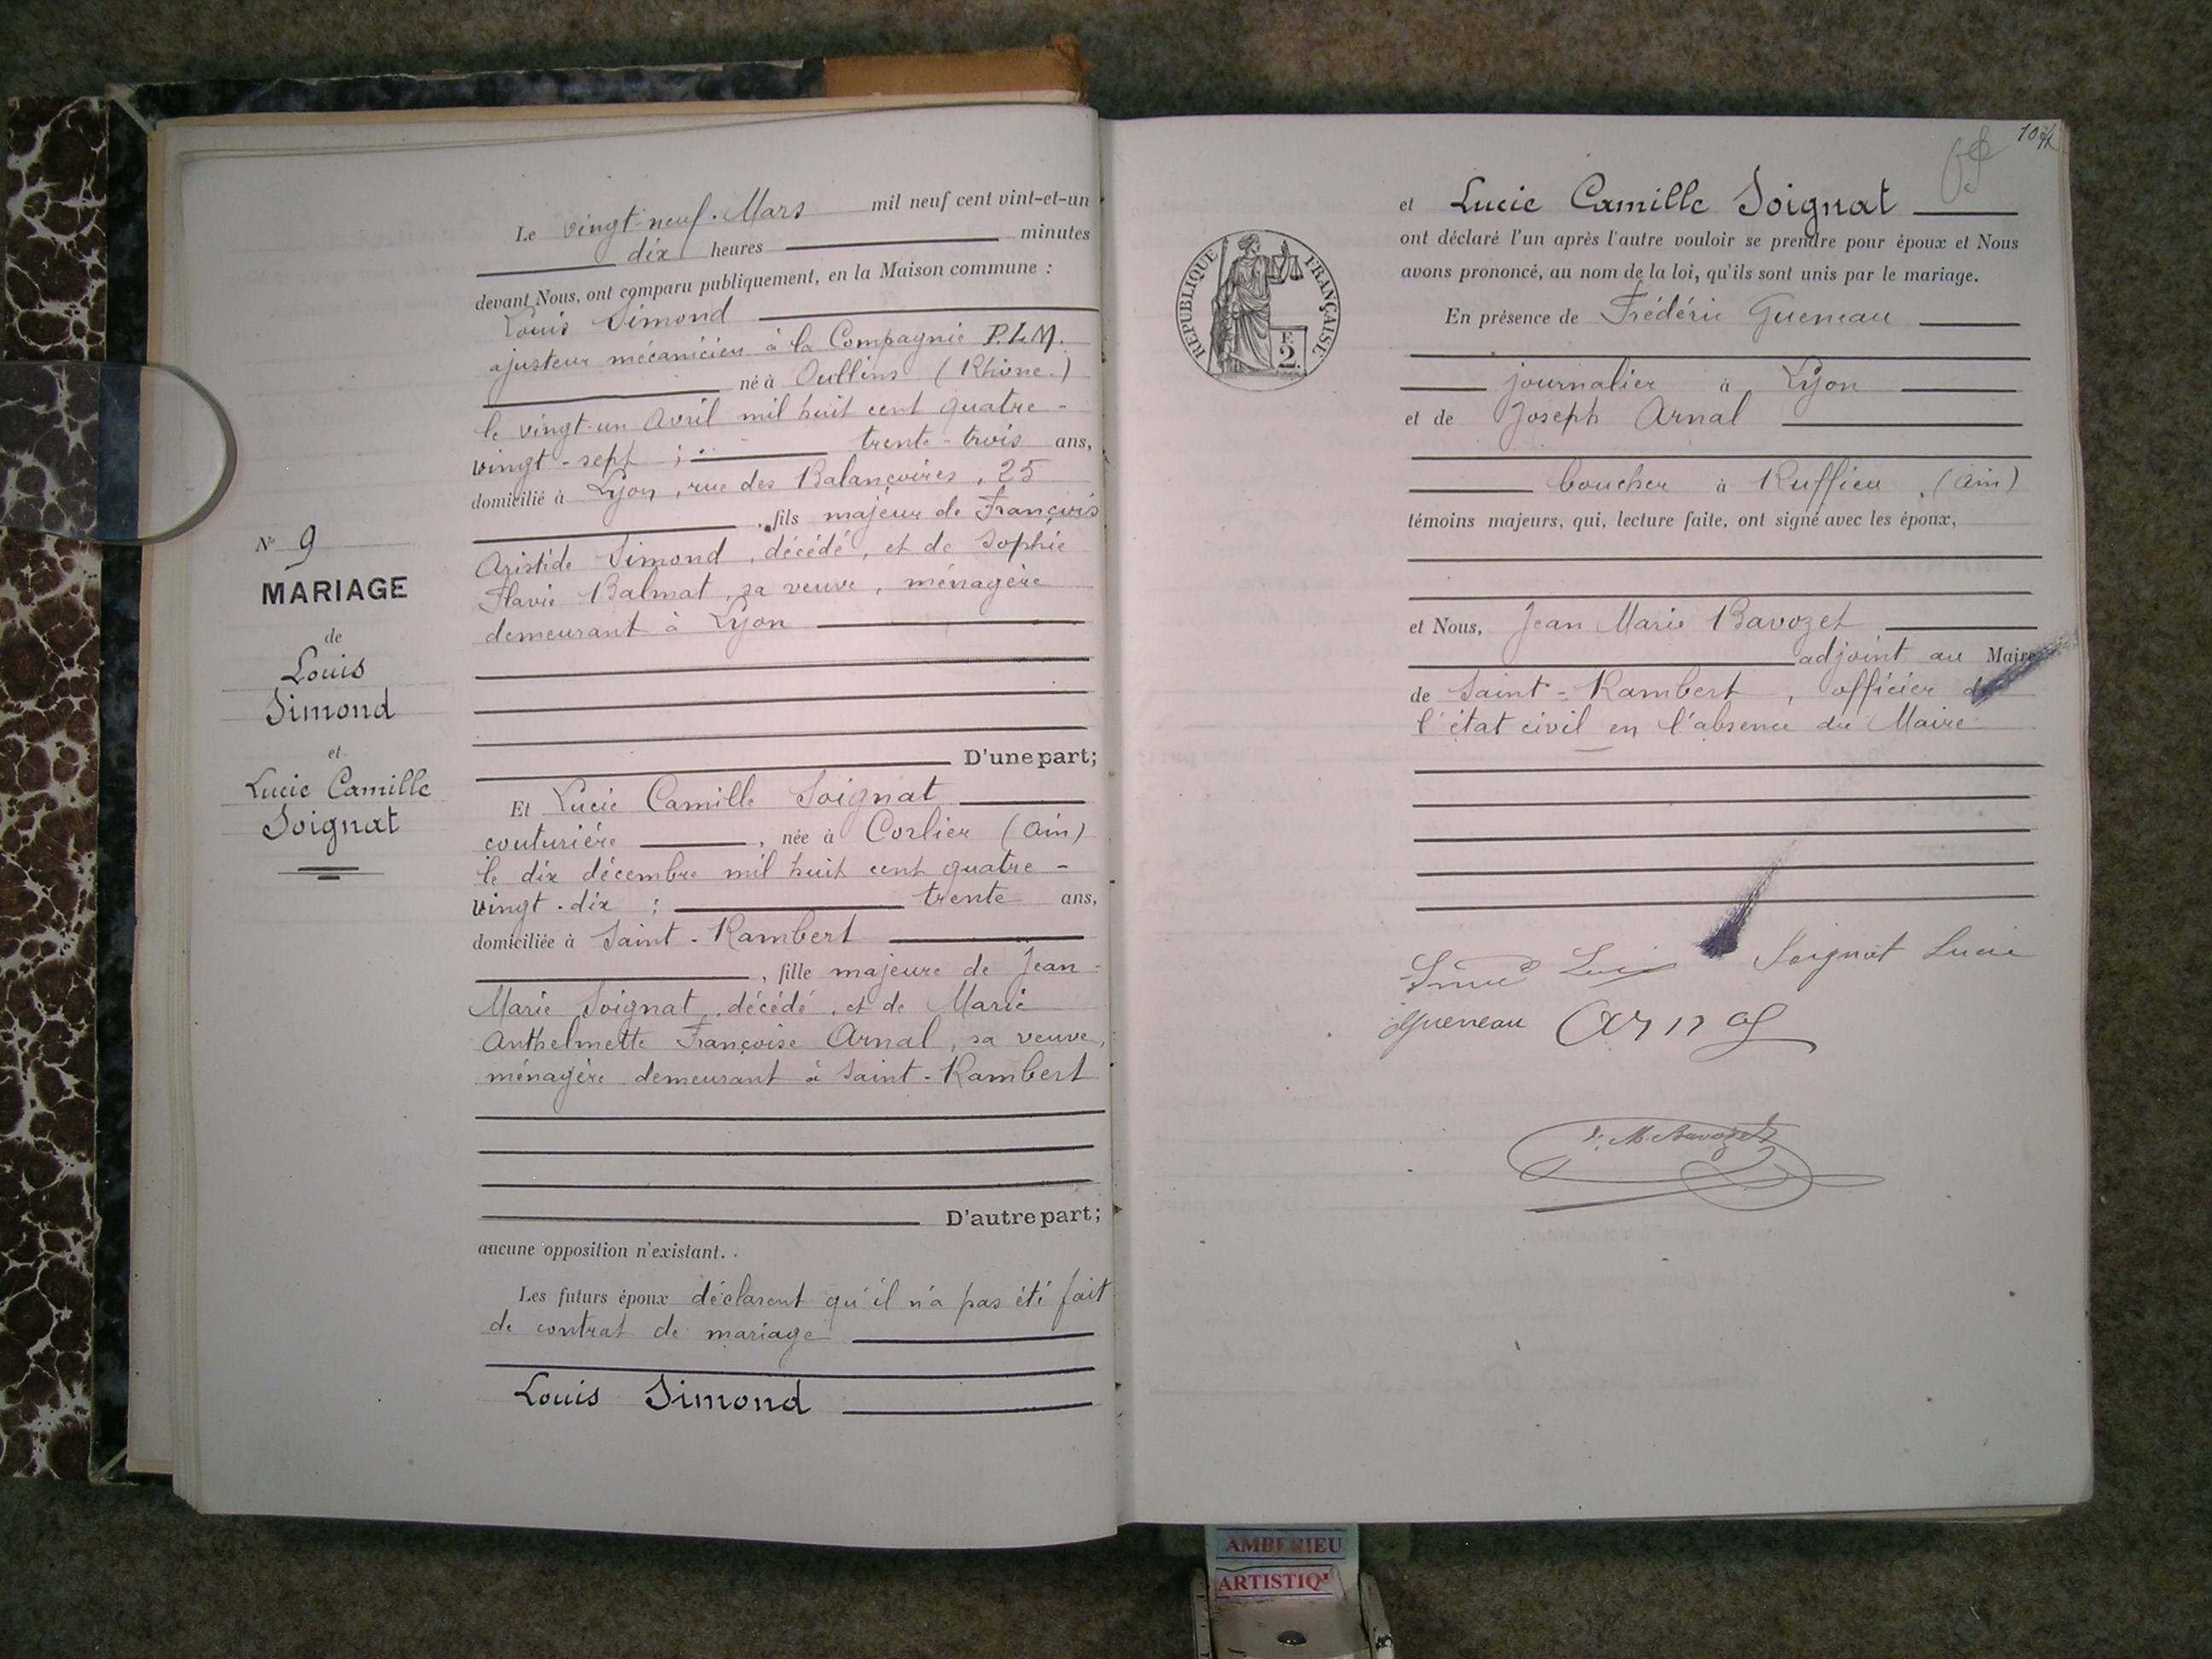 Le vingt-neuf Mars mil neuf cent vint-et-un
dix heures minutes
devant Nous, ont comparu publiquement, en la Maison commune :
Louis Simond
ajusteur mécanicien à la Compagnie P.L.M.
né à Oullins (Rhône.)
le vingt-un Avril mil huit cent quatre-
vingt-sept ; trente-trois ans,
domicilié à Lyon, rue des Balançoires, 25
, fils majeur de François
Aristide Simond, décédé, et de Sophie
Flavie Balmat, sa veuve, ménagère
demeurant à Lyon
D'une part;
Et Lucie Camille Soignat
couturière , née à Corlier (Ain)
le dix décembre mil huit cent quatre-
vingt-dix ; trente ans,
domiciliée à Saint-Rambert
, fille majeure de Jean-
Marie Soignat, décédé, et de Marie
Anthelmette Françoise Arnal, sa veuve,
ménagère demeurant à Saint-Rambert
D'autre part;
aucune opposition n'existant.
Les futurs époux déclarent qu'il n'a pas été fait
de contrat de mariage
Louis Simond
N° 9
MARIAGE
de
Louis
Simond
et
Lucie Camille
Soignat
10
et Lucie Camille Soignat
ont déclaré l'un après l'autre vouloir se prendre pour époux et Nous
avons prononcé, au nom de la loi, qu'ils sont unis par le mariage.
En présence de Frédéric Gueneau
journalier à Lyon
et de Joseph Arnal
boucher à Ruffieu (Ain)
témoins majeurs, qui, lecture faite, ont signé avec les époux,
et Nous, Jean Marie Bavozet
adjoint au Maire
de Saint-Rambert, officier de
l'état civil en l'absence du Maire
REPUBLIQUE FRANÇAISE
F.
2.
Soignat Lucie
Gueneau Arnal
J. M. Bavozet
AMBERIEU
ARTISTIQ